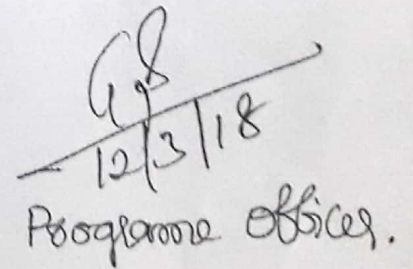 12/3/18
Programme Officer.